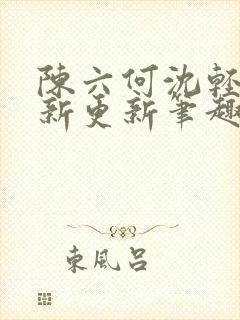 陳六何沈輕
新更新筆趣
東風呂